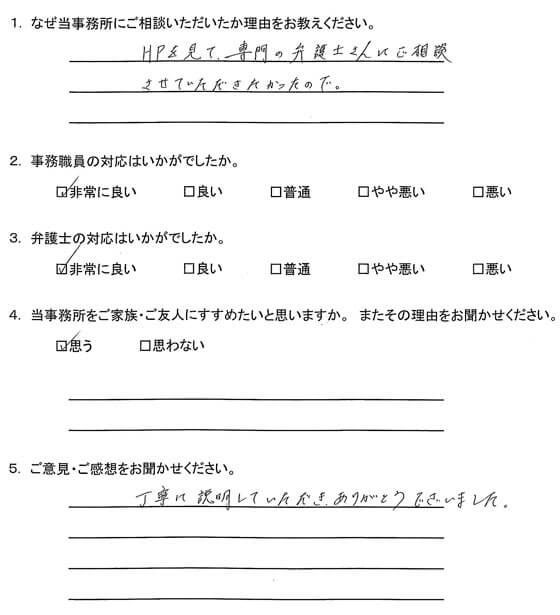 1. なぜ当事務所にご相談いただいたか理由をお教えください。
HPを見て、専門の弁護士さんにご相談
させていただきたかったので。
2. 事務職員の対応はいかがでしたか。
☑非常に良い □良い □普通 □やや悪い □悪い
3. 弁護士の対応はいかがでしたか。
☑非常に良い □良い □普通 □やや悪い □悪い
4. 当事務所をご家族・ご友人にすすめたいと思いますか。 またその理由をお聞かせください。
☑思う □思わない
5. ご意見・ご感想をお聞かせください。
丁寧に説明していただき、ありがとうございました。